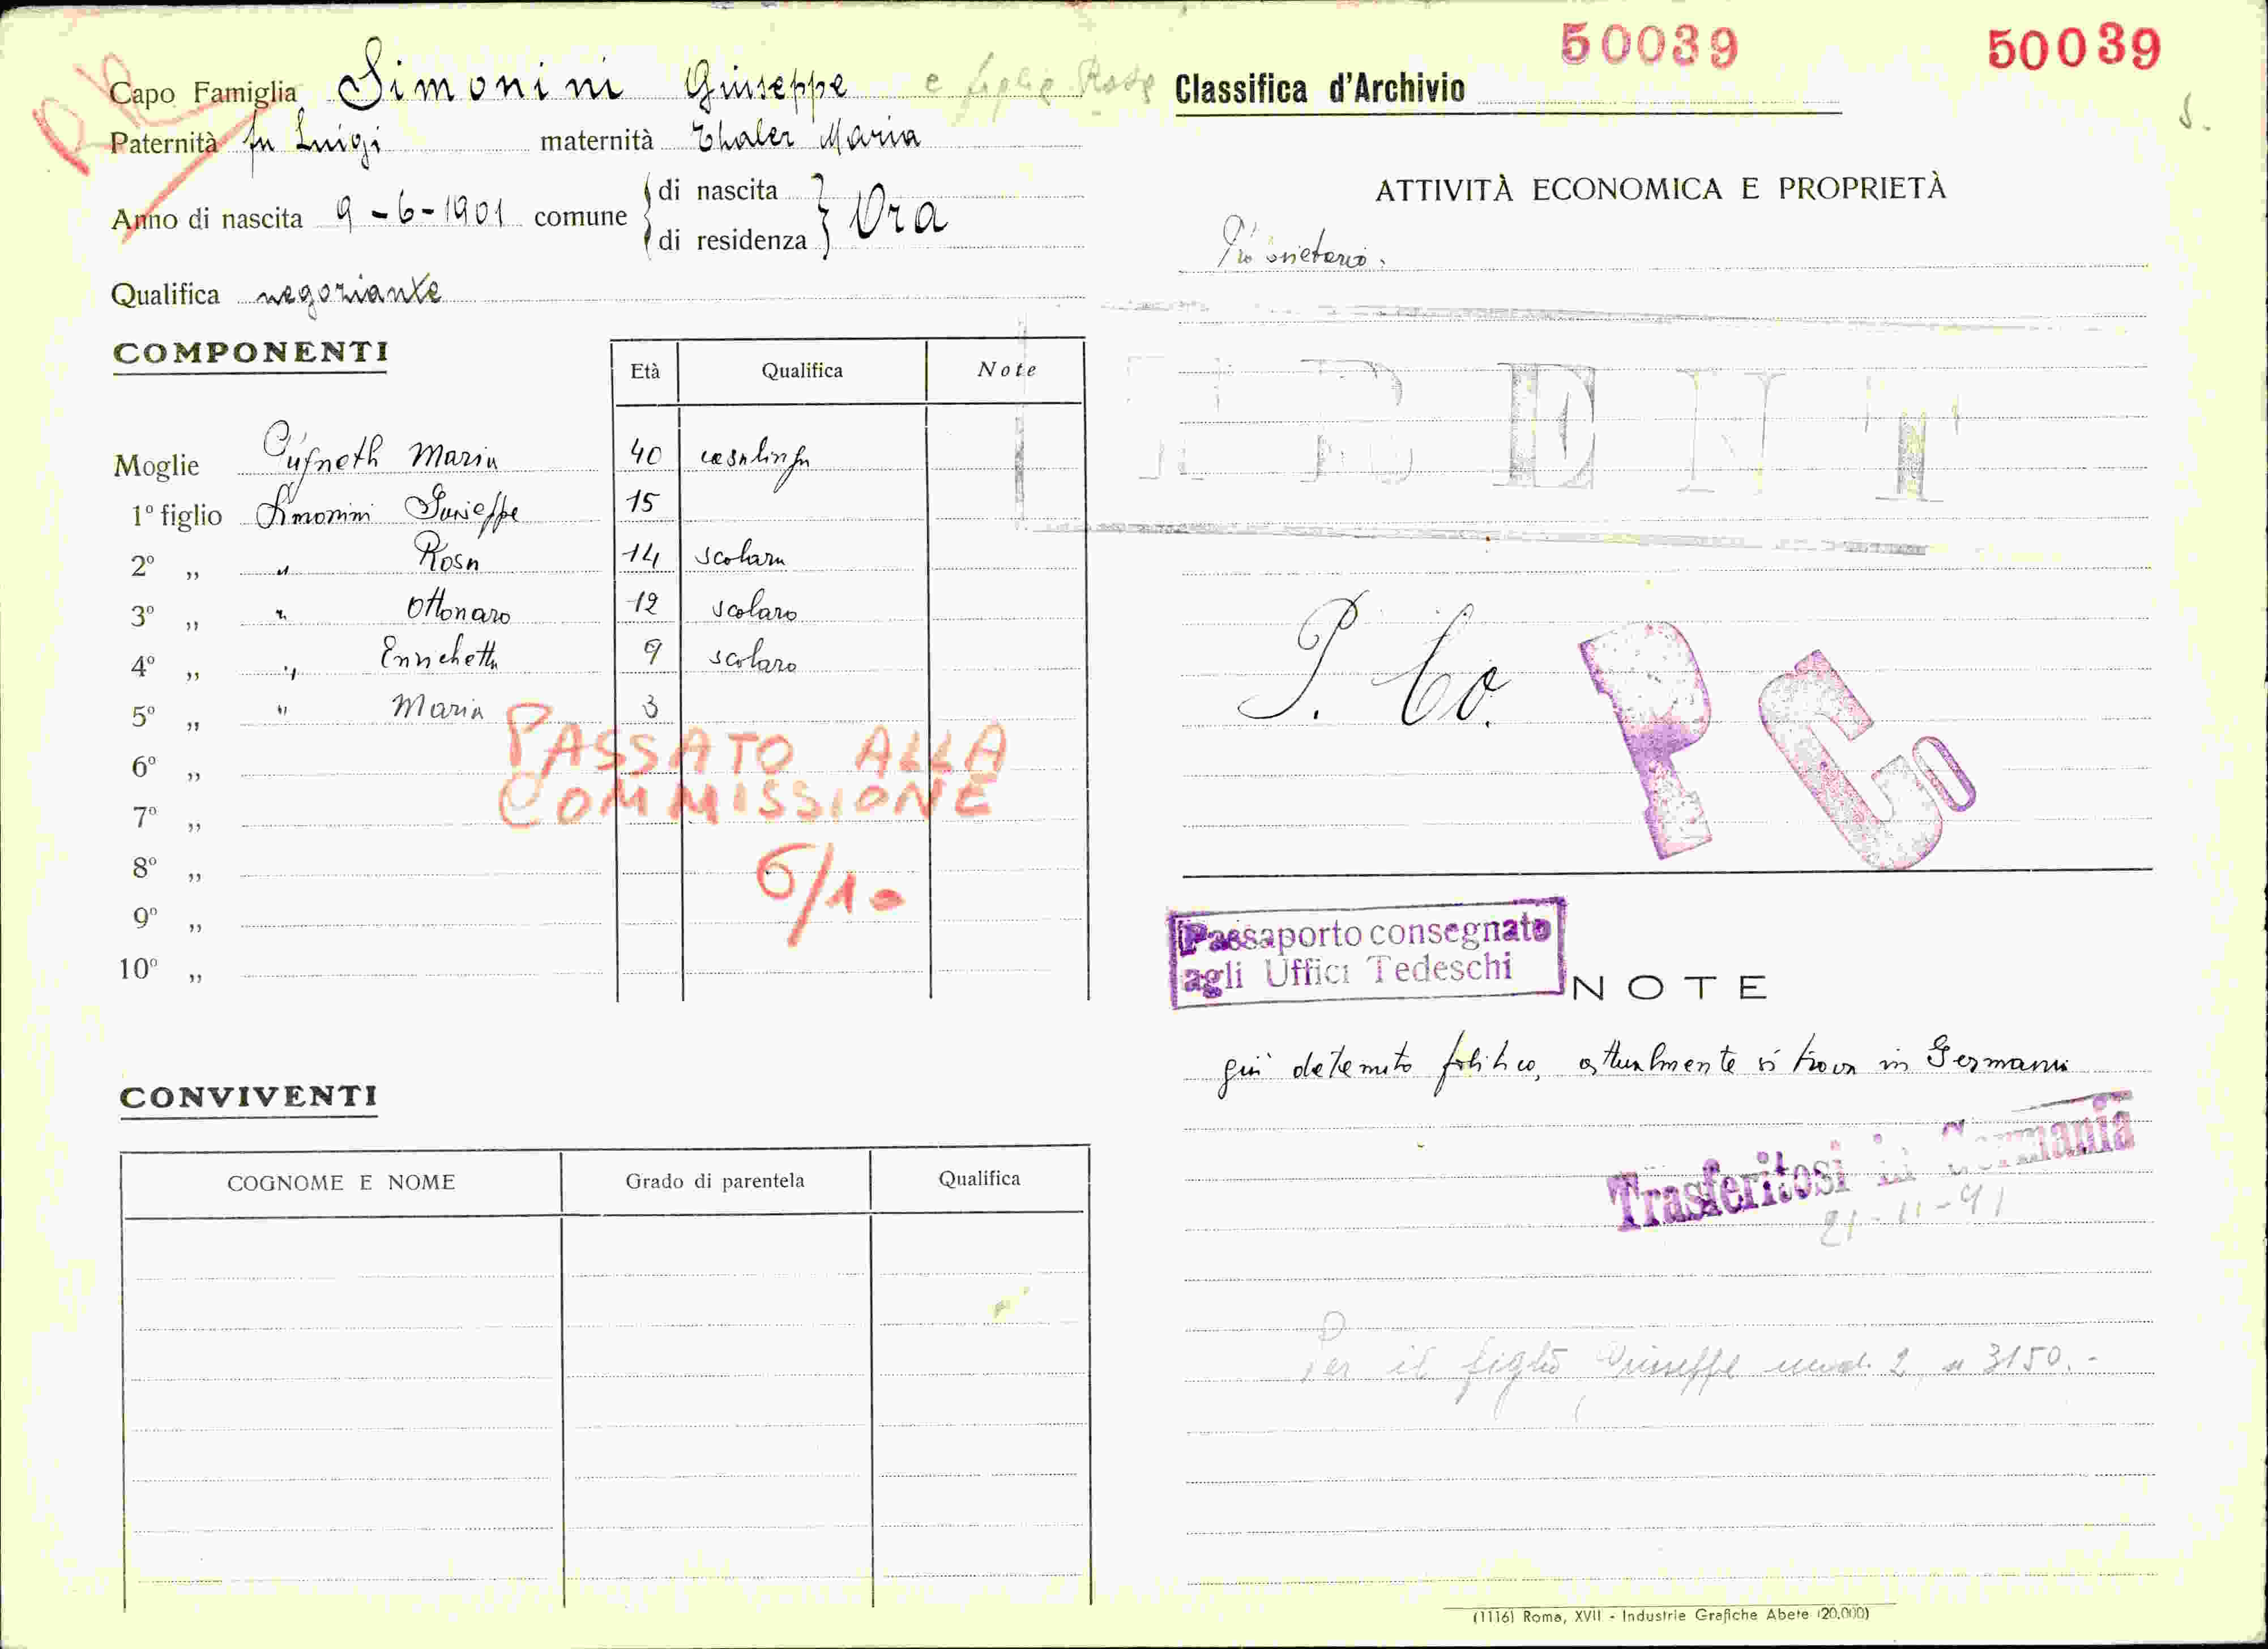 50039
50039
Capo Famiglia Simonini Giuseppe e figlia Rosa
Paternità fu Luigi maternità Thaler Maria
Anno di nascita 9-6-1901 comune di nascita
di residenza Ora
Qualifica negoziante
COMPONENTI
Età Qualifica Note
Moglie Maria 40 casalinga
1º figlio Simonini Giuseppe 15
2º „ „ Rosa 14 scolara
3º „ „ Ottonaro 12 scolaro
4º „ „ Enrichetta 9 scolaro
5º „ „ Maria 3
6º „
7º „
8º „
9º „
10º „
PASSATO ALLA
COMMISSIONE
6/10
CONVIVENTI
COGNOME E NOME Grado di parentela Qualifica
Classifica d'Archivio
S.
ATTIVITÀ ECONOMICA E PROPRIETÀ
Proprietario.
P. Co.
P Co
Passaporto consegnato
agli Uffici Tedeschi
NOTE
già detenuto politico, attualmente si trova in Germania
Trasferitosi in Germania
21-11-41
Per il figlio Giuseppe mod. 2 n 3150.-
(1116) Roma, XVII - Industrie Grafiche Abete (20.000)